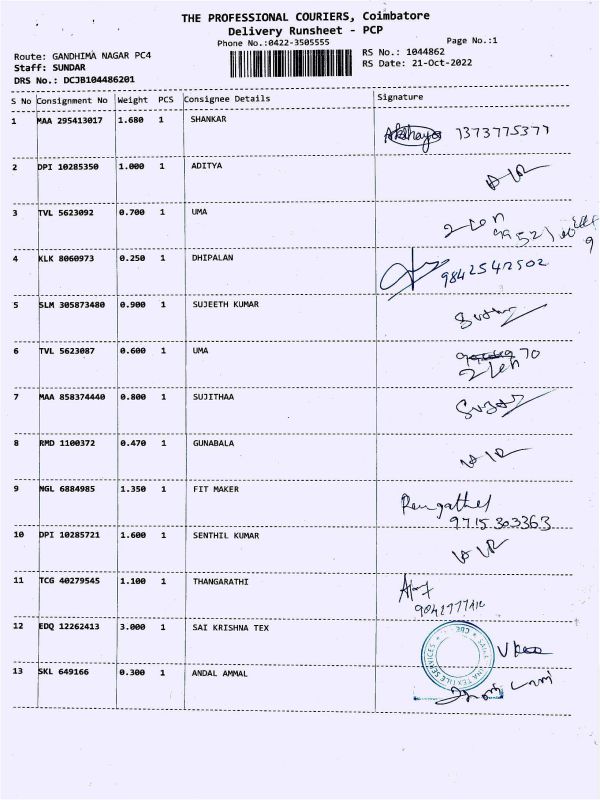 THE PROFESSIONAL COURIERS, Coimbatore
Delivery Runsheet - PCP
Phone No.:0422-3505555
Page No.:1
Route: GANDHIMA NAGAR PC4
RS No.: 1044862
Staff: SUNDAR
RS Date: 21-Oct-2022
DRS No.: DCJB104486201
S No Consignment No Weight PCS Consignee Details Signature
1 MAA 295413017 1.680 1 SHANKAR
Akshaya 7373775377
2 DPI 10285350 1.000 1 ADITYA
3 TVL 5623092 0.700 1 UMA
4 KLK 8060973 0.250 1 DHIPALAN
9842542502
5 SLM 305873480 0.900 1 SUJEETH KUMAR
6 TVL 5623087 0.600 1 UMA
7 MAA 858374440 0.800 1 SUJITHAA
8 RMD 1100372 0.470 1 GUNABALA
9 NGL 6884985 1.350 1 FIT MAKER
Rengathel
9715303363
10 DPI 10285721 1.600 1 SENTHIL KUMAR
11 TCG 40279545 1.100 1 THANGARATHI
12 EDQ 12262413 3.000 1 SAI KRISHNA TEX
13 SKL 649166 0.300 1 ANDAL AMMAL